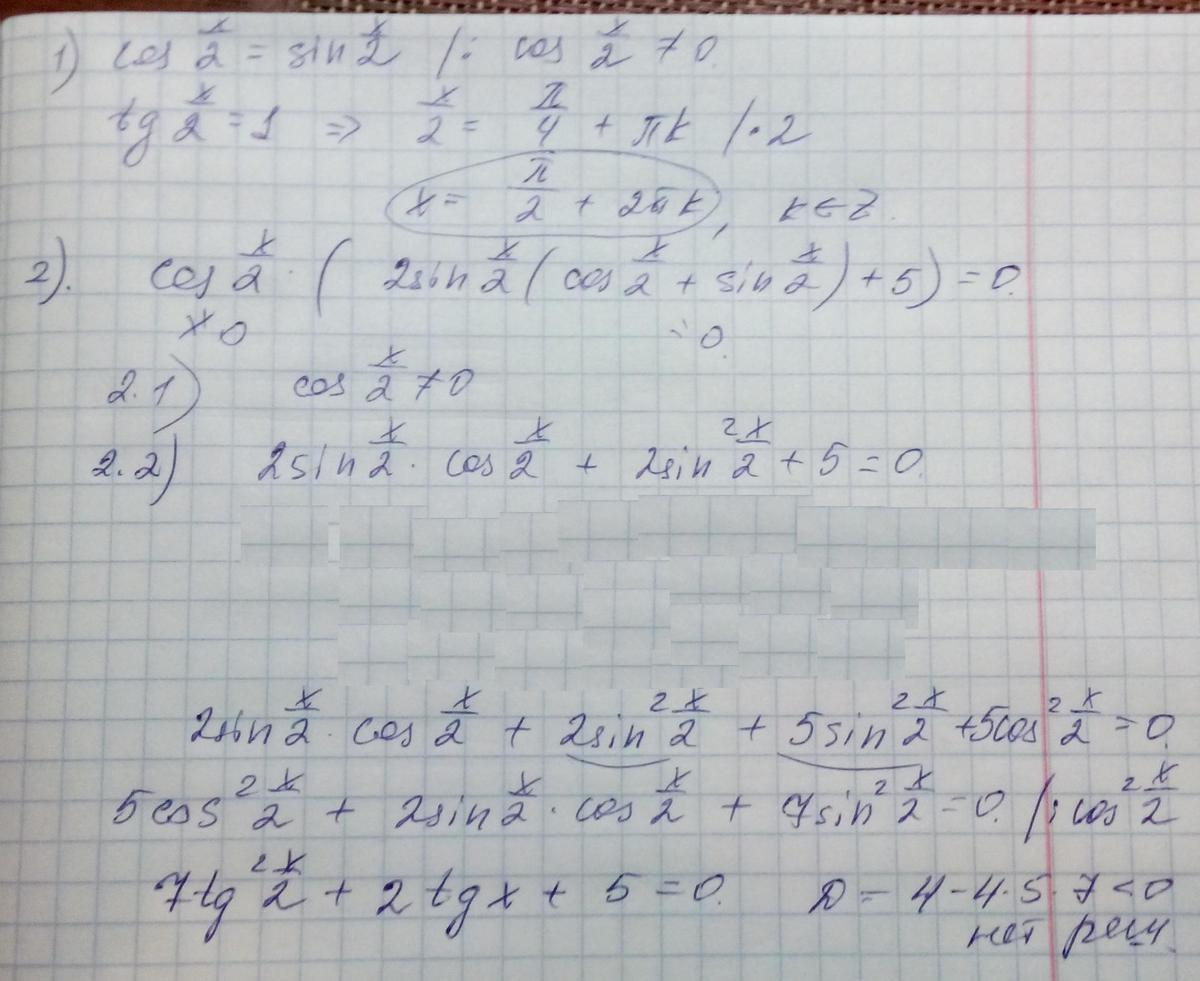 1) cos x/2 = sin x/2 /: cos x/2 ≠ 0.
tg x/2 = 1 => x/2 = π/4 + πk /·2
x = π/2 + 2πk, k∈Z.
2). cos x/2 · ( 2sin x/2 ( cos x/2 + sin x/2 ) + 5 ) = 0.
≠0 =0.
2.1) cos x/2 ≠ 0
2.2) 2sin x/2 · cos x/2 + 2sin² x/2 + 5 = 0.
2sin x/2 · cos x/2 + 2sin² x/2 + 5sin² x/2 + 5cos² x/2 = 0.
5cos² x/2 + 2sin x/2 · cos x/2 + 7sin² x/2 = 0. /: cos² x/2
7tg² x/2 + 2tgx + 5 = 0. D = 4 - 4·5·7 < 0
нет реш.